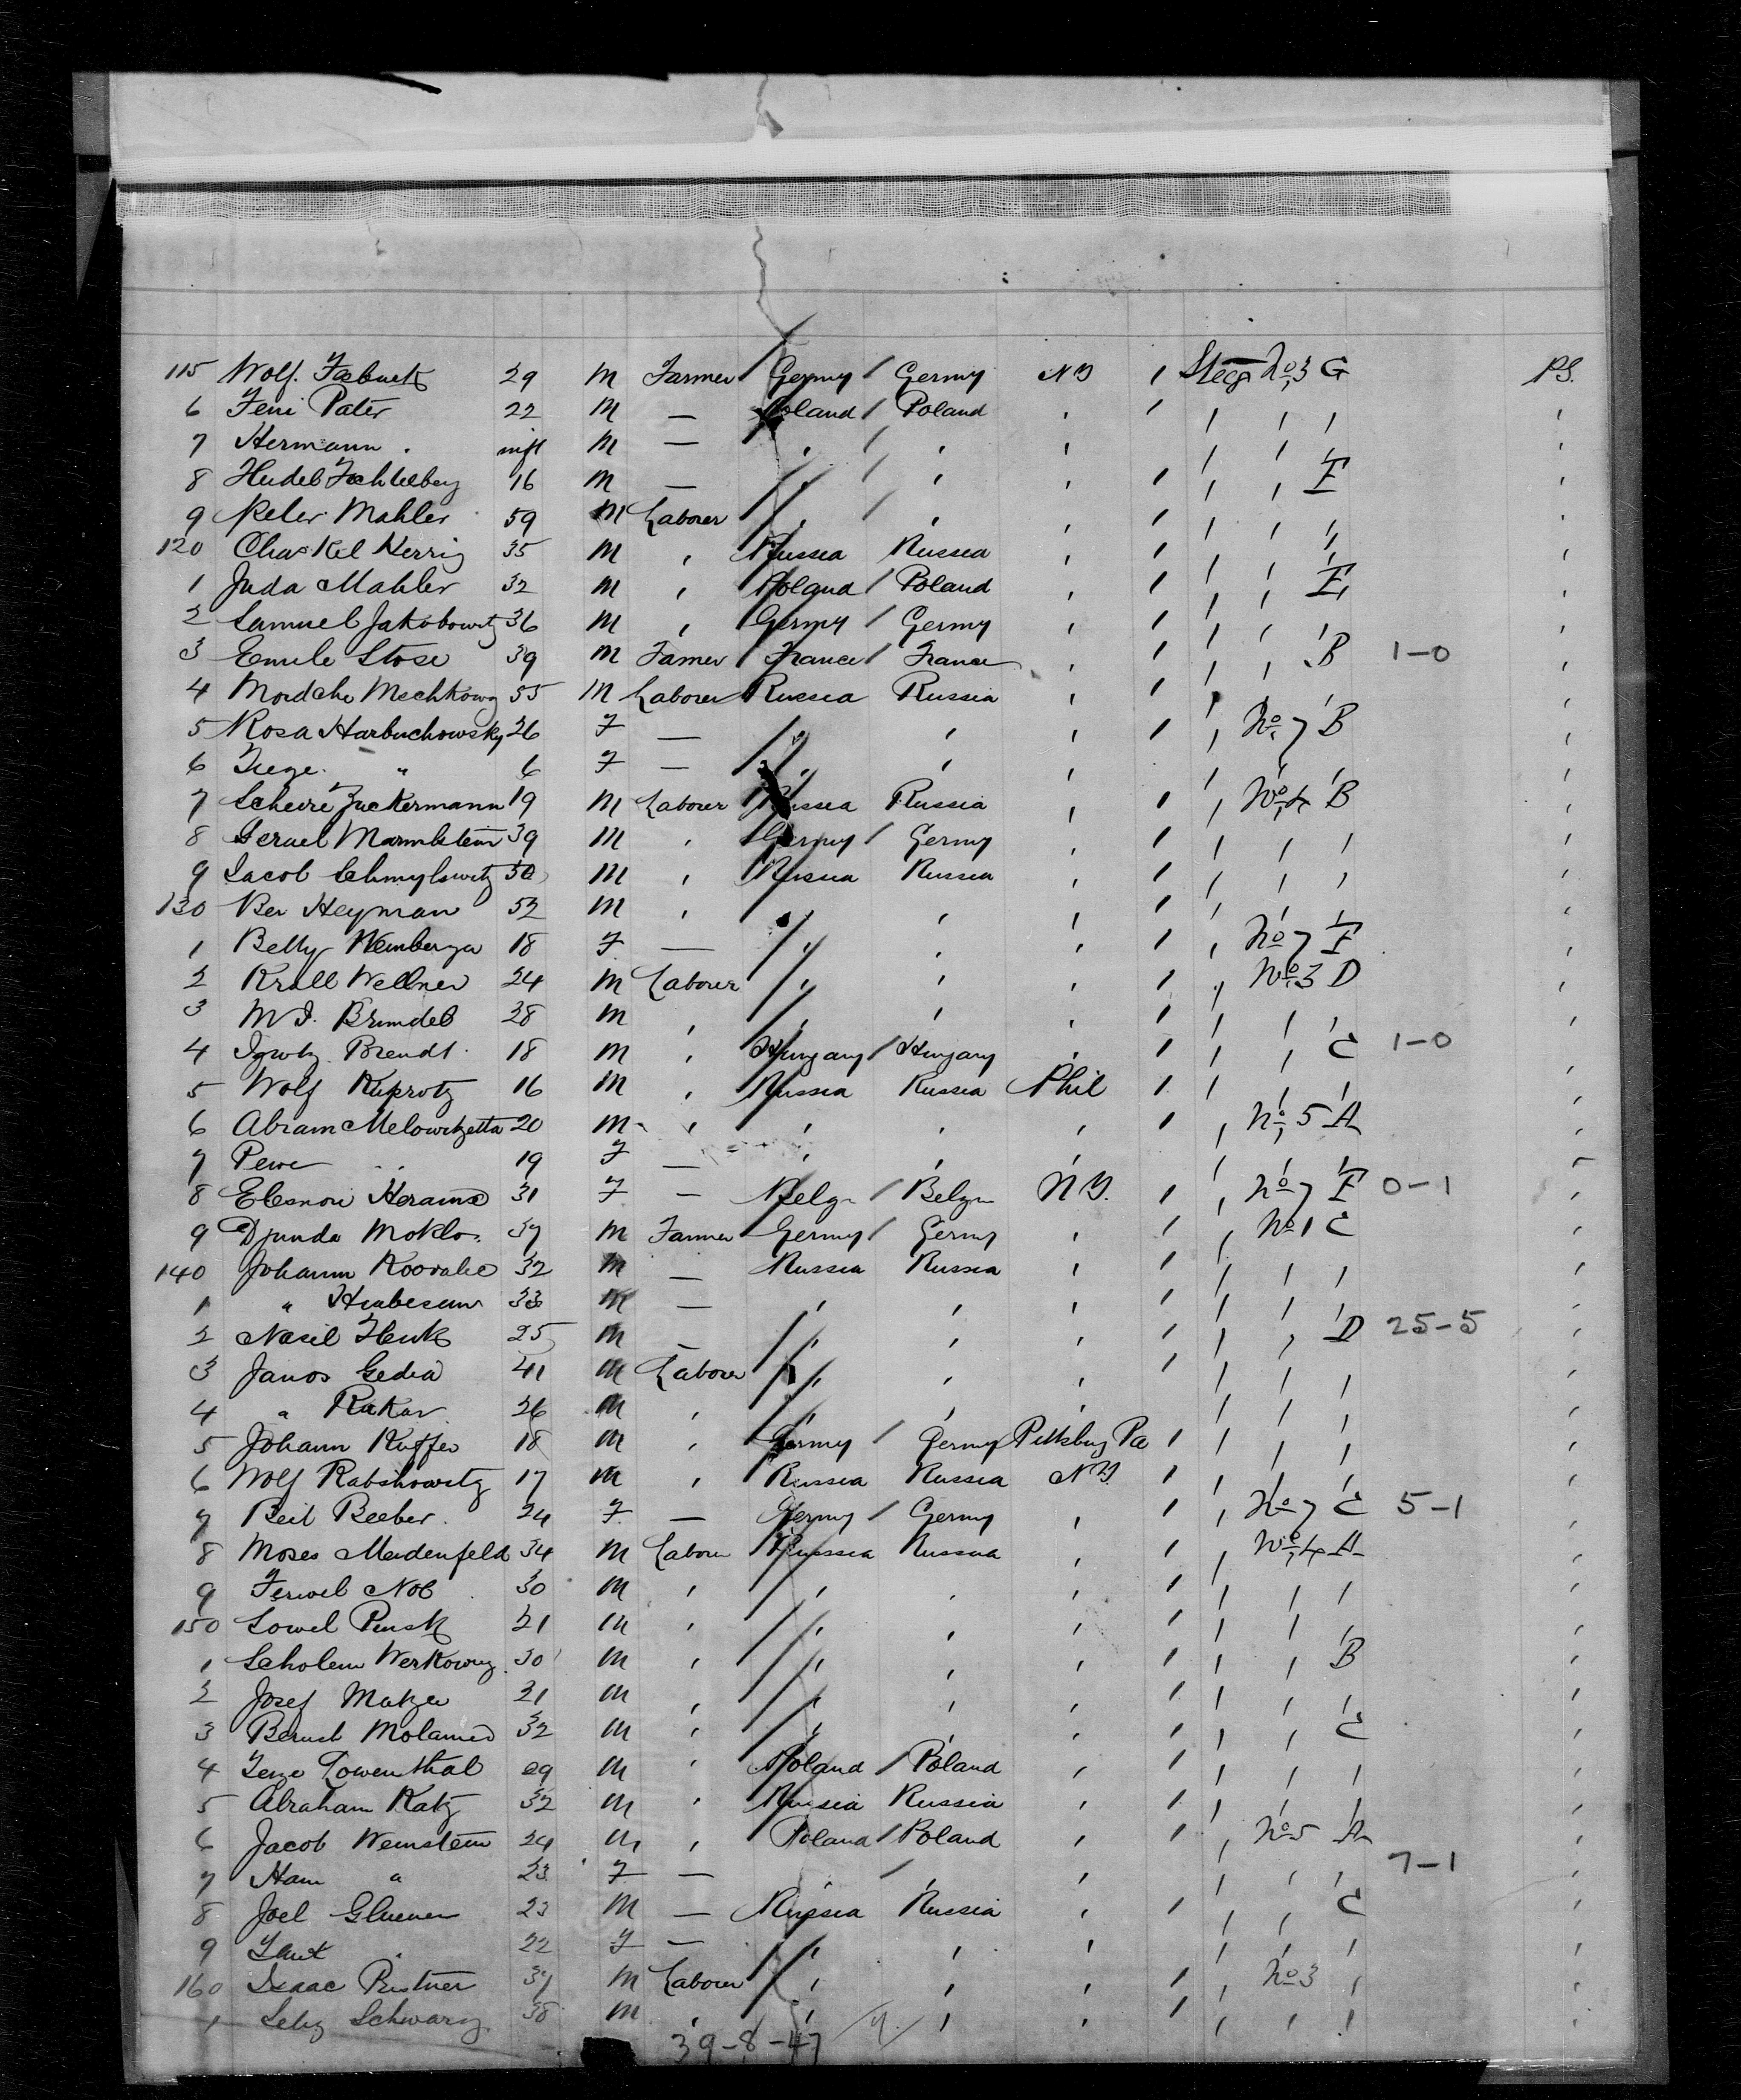 115 Wolf. Fabuck 29 M Farmer / Germy / Germy NY 1 Steeg No 3 G PS.
6 Feni Pater 22 M — Poland / Poland , 1 , , , ,
7 Hermann . inft M — , , , , , , ,
8 Hudel 16 M — , , , 1 , , F ,
9 Peler Mahler 59 M Laborer , , , 1 , , , ,
120 Chaskel Herrig 35 M , Russia Russia , 1 , , , ,
1 Juda Mahler 32 M , Poland / Poland , 1 , , E ,
2 Samuel Jakobowitz 36 M , Germy / Germy , 1 , , , ,
3 Emile Stose 39 M Famer / France / France , 1 , , B 1-0 ,
4 Mordche Mechkowz 55 M Laborer Russia Russia , 1 , , , ,
5 Rosa Harbuchowsky 26 F — , , , 1 , No 7 B ,
6 " 6 F — , , , , , , ,
7 Scheire Zuckermann 19 M Laborer Russia Russia , 1 , No 4 B ,
8 Israel Marmlstein 39 M , Germy / Germy , 1 , , , ,
9 Jacob 50 M , Russia Russia , 1 , , , ,
130 Ber Heyman 52 M , , , , 1 , , , ,
1 Betty Wemberga 18 F — , , , 1 , No 7 F ,
2 Krall Wellner 24 M Laborer , , , 1 , No 3 D ,
3 M I. Brundel 28 M , , , , 1 , , , ,
4 Brendt 18 M , Hungary / Hungary , 1 , , C 1-0 ,
5 Wolf Kuprotz 16 M , Russia Russia Phil 1 , , , ,
6 Abram Melowitzetta 20 M , , , , 1 , No 5 A ,
7 19 F — , , , , , , ,
8 Elesnore Herams 31 F — Belgn / Belgn N Y. 1 , No 7 F 0-1 ,
9 Djunda Moklo. 37 M Farmer Germy / Germy , 1 , No 1 C ,
140 Johann Koovalic 32 M — Russia Russia , 1 , , , ,
1 " 33 M — , , , 1 , , , ,
2 Nasil Henk 25 M — , , , 1 , , D 25-5 ,
3 Janos Gedra 41 M Laborer , , , 1 , , , ,
4 " Rakar 26 M , , , , 1 , , , ,
5 Johann Kuffer 18 M , Germy / Germy Pittsburg Pa 1 , , , ,
6 Wolf Rabshowitz 17 M , Russia Russia N Y. 1 , , , ,
7 Beil Beeber. 24 F — Germy / Germy , 1 , No 7 C 5-1 ,
8 Moses Meidenfeld 34 M Labour Russia Russia , 1 , No 4 A ,
9 Ferwel Nol 30 M , , , , 1 , , , ,
150 Lowel Pensk 21 M , , , , 1 , , , ,
1 Scholem Werkowz 30 M , , , , 1 , , B ,
2 Josef Matzer 21 M , , , , 1 , , , ,
3 Berush Molamed 32 M , , , , 1 , , C ,
4 Lowenthal 29 M , Poland / Poland , 1 , , , ,
5 Abraham Katz 32 M , Russia Russia , 1 , , , ,
6 Jacob Weinstein 24 M , Poland / Poland , 1 , No 5 A ,
7 Ham " 23 F — , , , , , , 7-1 ,
8 Joel Gluener 23 M — Russia Russia , 1 , , C ,
9 22 F — , , , , , , ,
160 Isaac Pistner 37 M Laborer , , , 1 , No 3 , ,
1 Schwarz 38 M , , , , 1 , , , ,
39-8-47